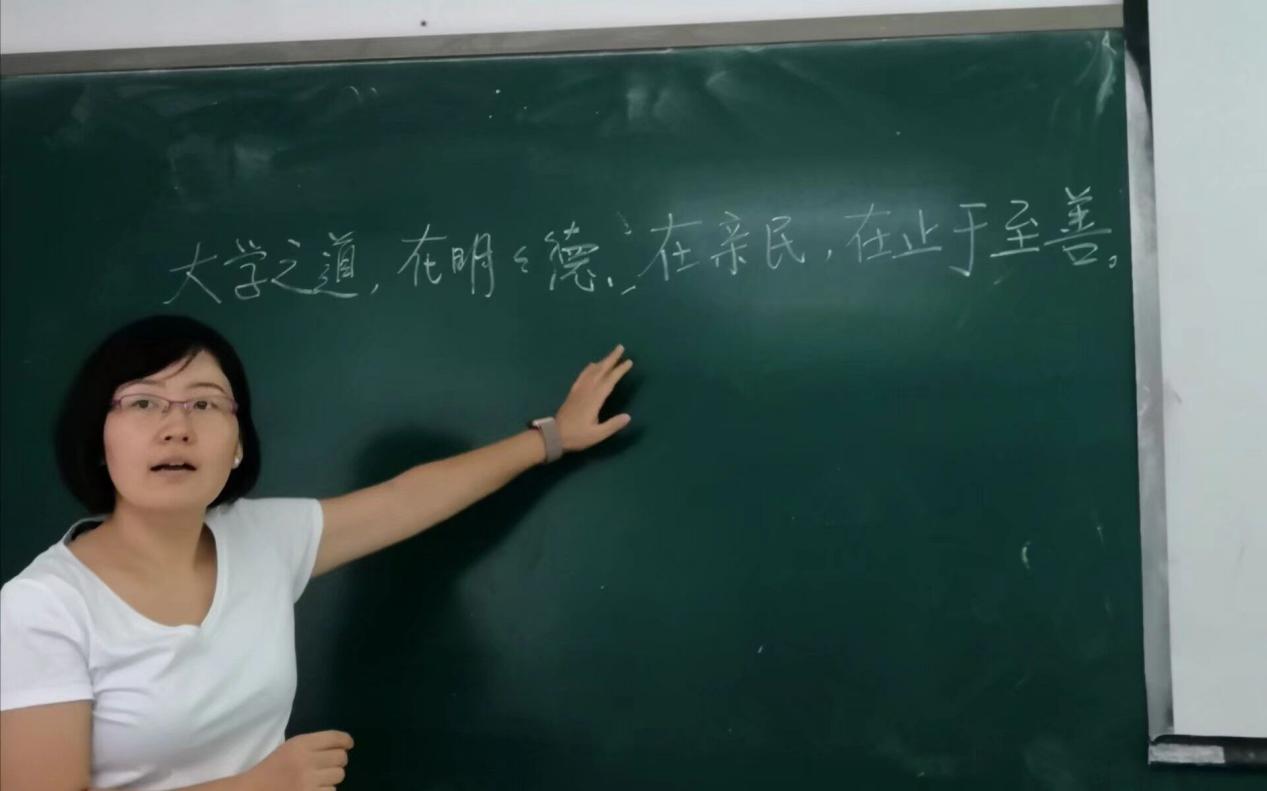 大学之道,在明々德,在亲民,在止于至善。